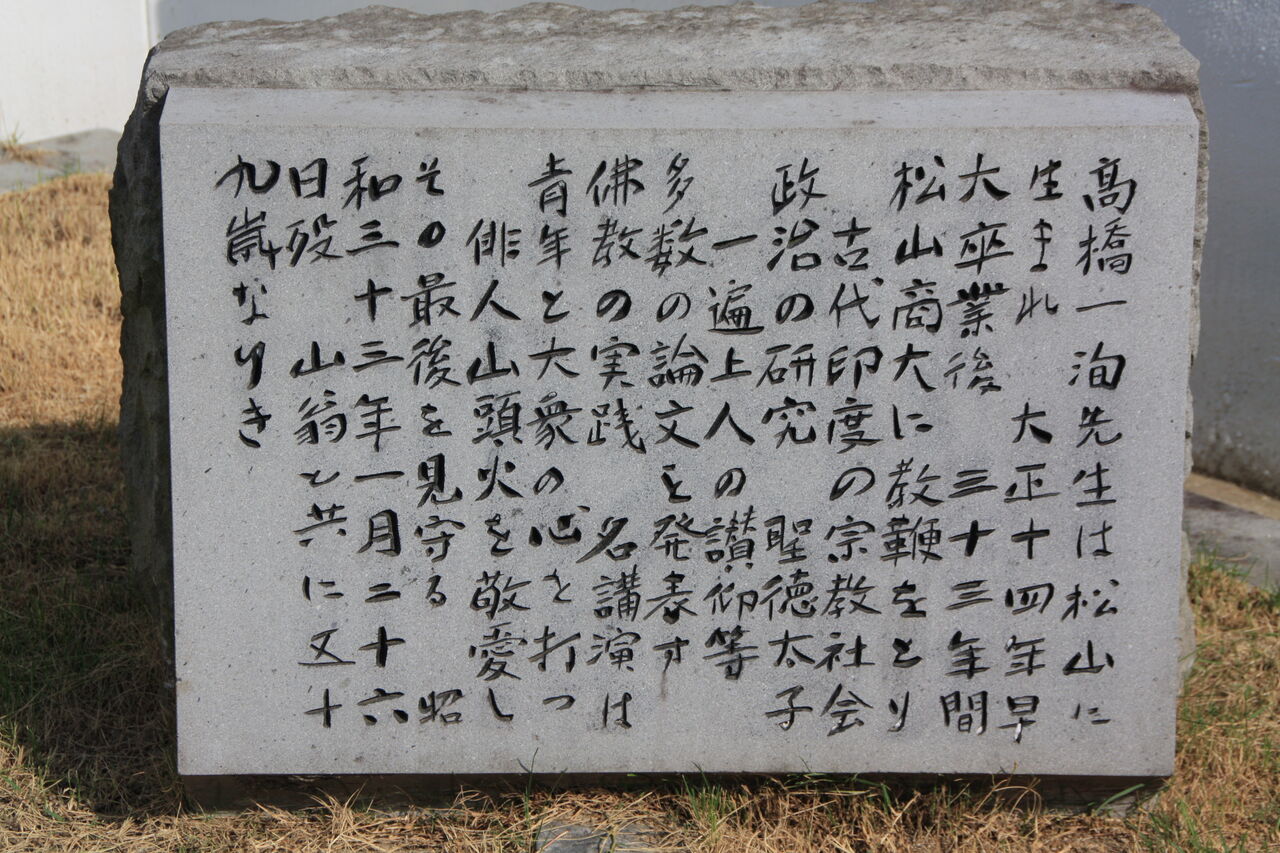 高橋一洵先生は松山に
生まれ 大正十四年早
大卒業後 三十三年間
松山商大に教鞭をとり
古代印度の宗教社会
政治の研究 聖徳太子
一遍上人の讃仰等
多数の論文を発表す
佛教の実践 名講演は
青年と大衆の心を打つ
俳人山頭火を敬愛し
その最後を見守る 昭
和三十三年一月二十六
日歿 山翁と共に五十
九歳なりき